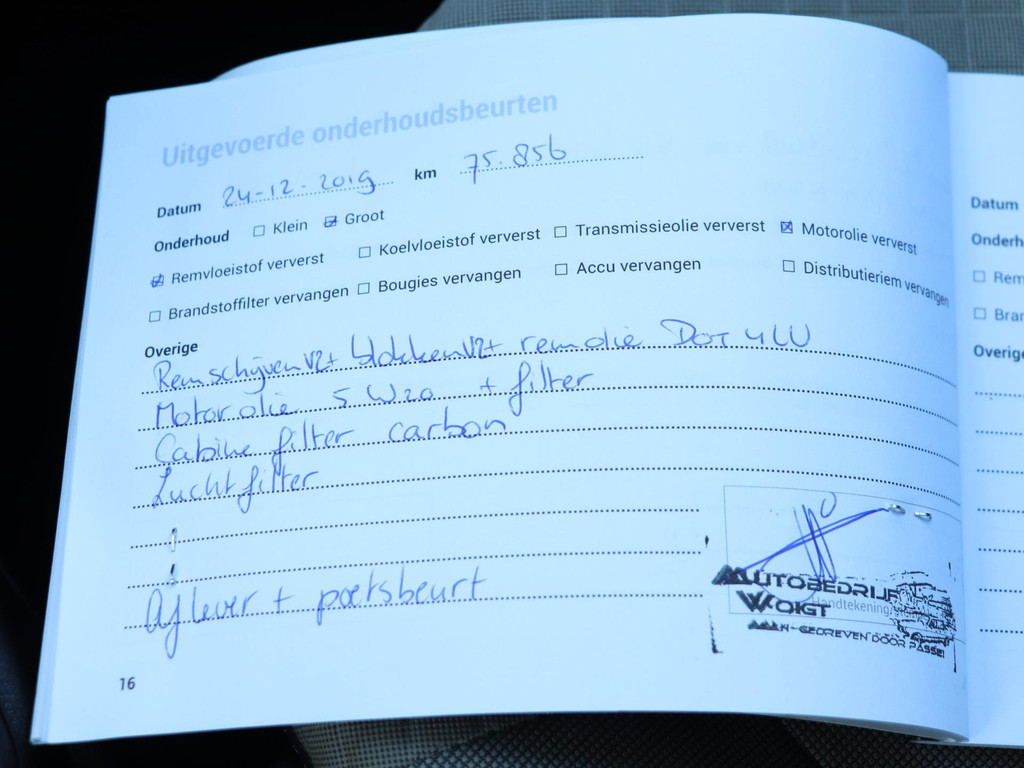 Uitgevoerde onderhoudsbeurten
Datum 24-12-2019 km 75.856
Onderhoud ☐ Klein ☑ Groot
☑ Remvloeistof ververst ☐ Koelvloeistof ververst ☐ Transmissieolie ververst ☒ Motorolie ververst
☐ Brandstoffilter vervangen ☐ Bougies vervangen ☐ Accu vervangen ☐ Distributieriem vervangen
Overige
Remschijven V2+ blokken V2+ remolie DOT 4 LV
Motorolie 5W20 + filter
Cabine filter carbon
Luchtfilter
Aflever + poetsbeurt
AUTOBEDRIJF
VOIGT
Handtekening
GEDREVEN DOOR PASSIE
16
Datum
Onderh
☐ Rem
☐ Bran
Overige